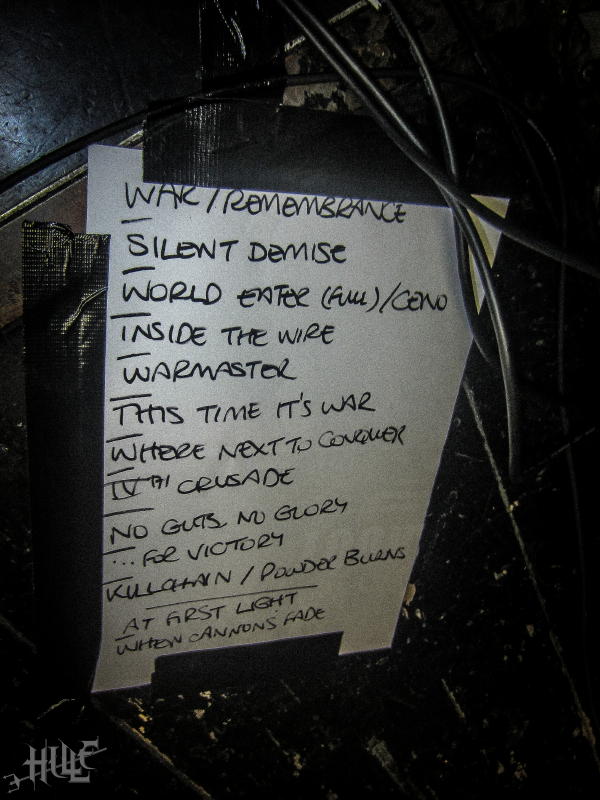 WAR / REMEMBRANCE
SILENT DEMISE
WORLD EATER (FULL) / CENO
INSIDE THE WIRE
WARMASTER
THIS TIME IT'S WAR
WHERE NEXT TO CONQUER
IVTH CRUSADE
NO GUTS NO GLORY
...FOR VICTORY
KILLCHAIN / POWDER BURNS
AT FIRST LIGHT
WHEN CANNONS FADE